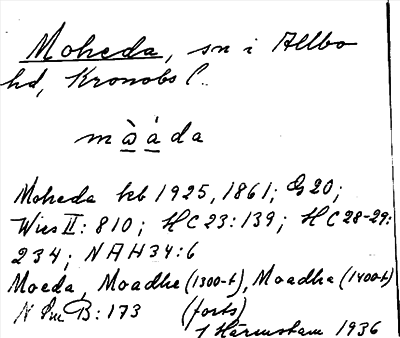 Moheda, sn i Allbo
hd, Kronobs l.
m ò̱ á̱ da
Moheda kb 1925, 1861; G 20;
Wies II: 810; HC 23:139; HC 28-29:
234; NAH 34:6
Moeda, Moadhe (1300-t), Moadha (1400-t)
N Sm B: 173 (forts)
Härmstam 1936